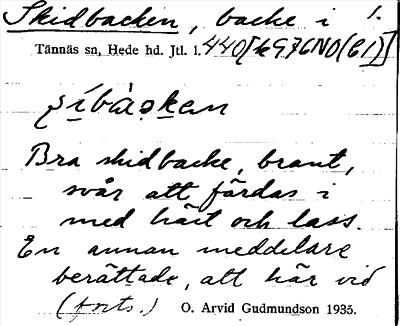 Skidbacken, backe i 1.
Tännäs sn, Hede hd. Jtl. 1. 440[k976NO(C1)]
Bra skidbacke, brant,
svår att färdas i
med häst och lass.
En annan meddelare
berättade, att här vid
(forts.) O. Arvid Gudmundson 1935.